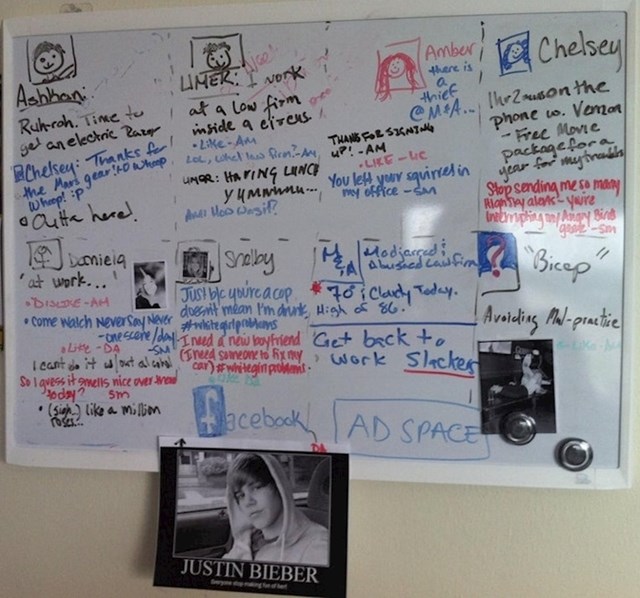 Ashkan:
Ruh-roh. Time to
get an electric Razor
@Chelsey: Thanks for
the Mars year! XD Whoop
Whoop! :P
Outta here!
UMER: I work
at a law firm
inside a circus
• Like - AM
LOL, what law firm? - AM
UMER: HAVING LUNCH
YUMMMMM...
Amber
there is
a
thief
@ M&A...
THANKS FOR SIGNING
UP! - AM
- LIKE -
You left your squirrel in
my office - SM
Chelsey
1 hr 2 mins on the
phone w. Verizon
- Free Movie
package for a
year for my troubles
Stop sending me so many
alerts - you're
interrupting my Angry Birds
game - SM
Daniela
"at work..."
• DISLIKE - AM
• Come Watch Never Say Never
- one scene/day
- SM
• Like - DA
I can't do it w/out alcohol
So I guess it smells nice over there
today? SM
• (sigh..) like a million
roses...
Shelby
Just b/c you're a cop
doesn't mean I'm drunk
#whitegirlproblems
I need a new boyfriend
(I need someone to fix my
car) #whitegirlproblems
M&A
Abused Law Firm
70°; Cloudy Today.
High of 86.
Get back to
work Slackers
facebook
AD SPACE
?
"Bicep"
Avoiding Mal-practice
DA
JUSTIN BIEBER
Everyone stop making fun of her!